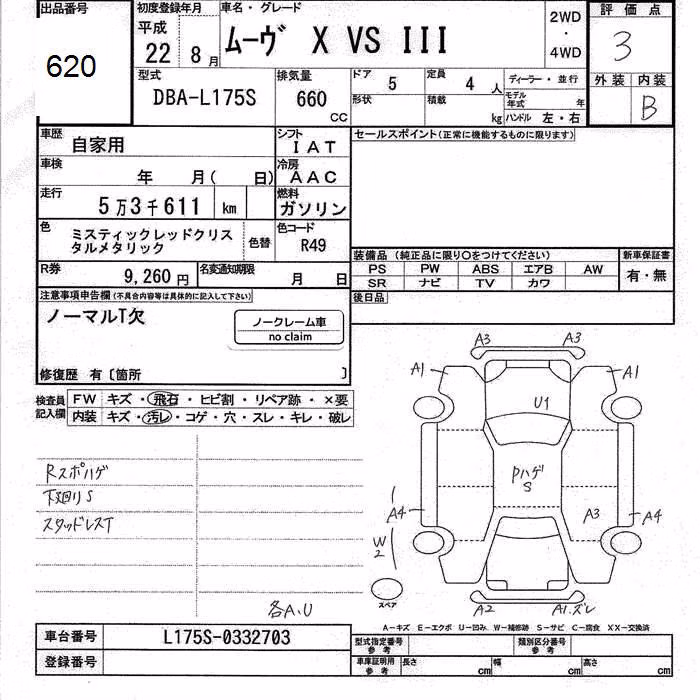 出品番号
620
初度登録年月
平成
22 8月
車名・グレード
ムーヴ X VS III
2WD
・
4WD
評価点
3
型式
DBA-L175S
排気量
660
CC
ドア 5
定員 4人
ディーラー・並行
形状
積載 kg
モデル年式 年
ハンドル 左・右
外装 内装
B
車歴
自家用
シフト
IAT
セールスポイント(正常に機能するものに限ります)
車検
年 月( 日)
冷房
AAC
走行
5万3千611 km
燃料
ガソリン
色
ミスティックレッドクリス
タルメタリック
色替
色コード
R49
装備品 (純正品に限り○をつけてください)
新車保証書
PS PW ABS エアB AW
有・無
SR ナビ TV カワ
R券
9,260円
名変通知期限
月 日
後日品
注意事項申告欄(不具合内容等は具体的に記入して下さい)
ノーマルT欠
ノークレーム車
no claim
修復歴 有〔箇所 〕
検査員
記入欄
FW キズ・飛石・ヒビ割・リペア跡・×要
内装 キズ・汚レ・コゲ・穴・スレ・キレ・破レ
A3 A3
A1 A1
U1
Rスポハゲ
下廻りS
スタッドレスT
Pハゲ
S
A4 A3 A4
W2
スペア
各A、U
A2 A1.ズレ
A−キズ E−エクボ U−凹み W−補修跡 S−サビ C−腐食 XX−交換済
車台番号 L175S-0332703
登録番号
型式指定番号
参考
類別区分番号
参考
車庫証明用
参考
長さ cm 幅 cm 高さ cm